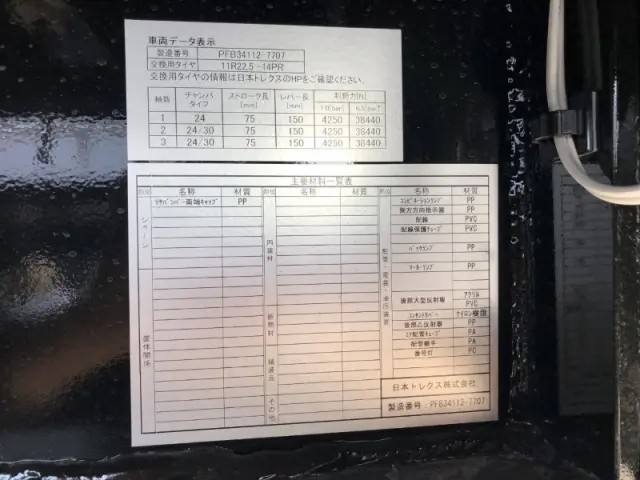 車両データ表示
製造番号 PFB34112-7707
交換用タイヤ 11R22.5 -14PR
交換用タイヤの情報は日本トレクスのHPをご確認ください。
軸数 チャンバタイプ ストローク長[mm] レバー長[mm] 制動力[N]
1 24 75 150 4250 38440
2 24/30 75 150 4250 38440
3 24/30 75 150 4250 38440
主要材料一覧表
名称 材質 名称 材質 名称 材質
リヤバンパー両端キャップ PP
コンビネーションランプ PP
側方方向指示器 PP
配線 PVC
配線保護チューブ PVC
バックランプ PP
マーカーランプ PP
後部大型反射板 アクリル
PVC
コンセントカバー ナイロン樹脂
後部凸反射器 PP
エア配管チューブ PA
配管継手 PA
番号灯 PC
内装材
断熱材
艤装品
その他
日本トレクス株式会社
製造番号:PFB34112-7707